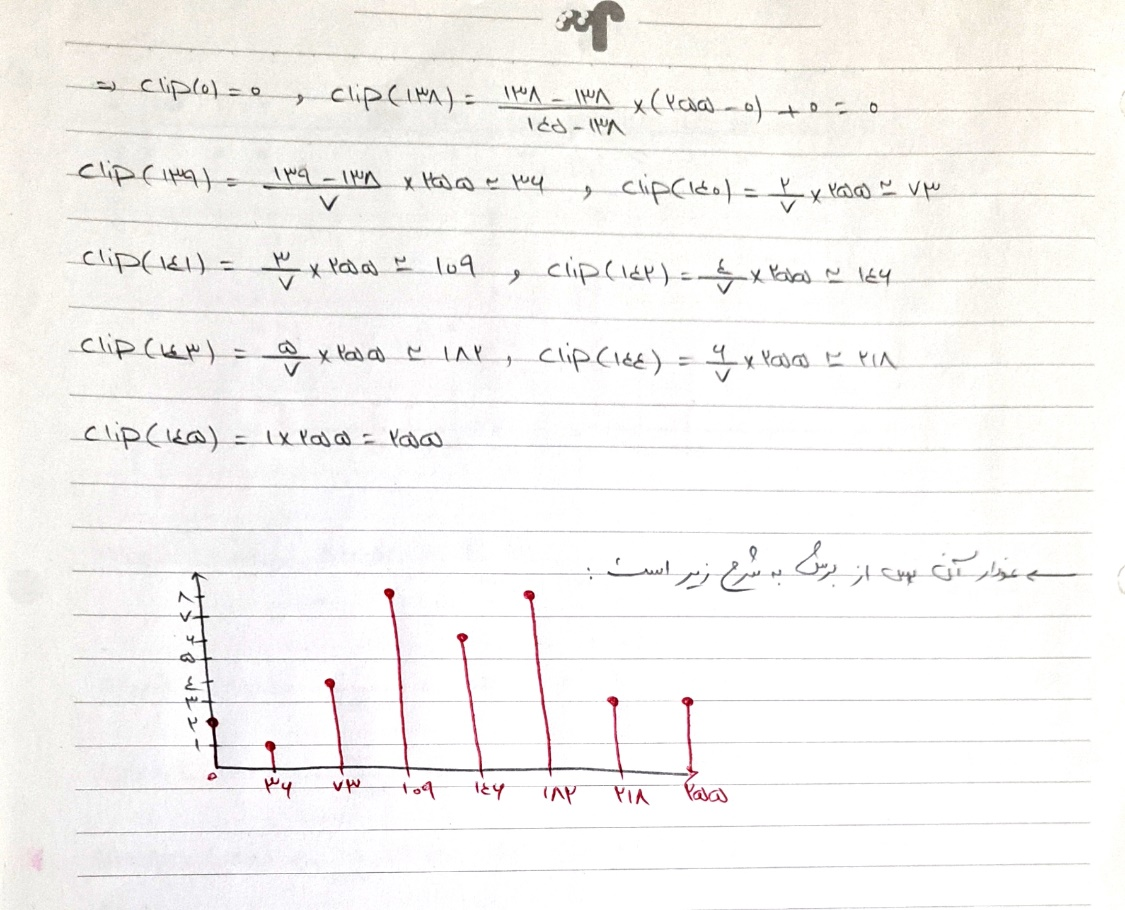 ⇒ clip(۰) = ۰ , clip(۱۳۸) = (۱۳۸ - ۱۳۸)/(۱۴۵ - ۱۳۸) × (۲۵۵ - ۰) + ۰ = ۰
clip(۱۳۹) = (۱۳۹ - ۱۳۸)/۷ × ۲۵۵ ≃ ۳۶ , clip(۱۴۰) = ۲/۷ × ۲۵۵ ≃ ۷۳
clip(۱۴۱) = ۳/۷ × ۲۵۵ ≃ ۱۰۹ , clip(۱۴۲) = ۴/۷ × ۲۵۵ ≃ ۱۴۶
clip(۱۴۳) = ۵/۷ × ۲۵۵ ≃ ۱۸۲ , clip(۱۴۴) = ۶/۷ × ۲۵۵ ≃ ۲۱۸
clip(۱۴۵) = ۱ × ۲۵۵ = ۲۵۵
نمودار آن پس از برش به شرح زیر است :
۸
۷
۶
۵
۴
۳
۲
۱
۰ ۳۶ ۷۳ ۱۰۹ ۱۴۶ ۱۸۲ ۲۱۸ ۲۵۵